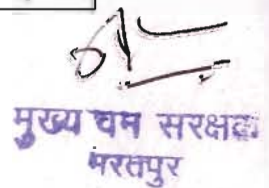 मुख्य वन सरंक्षक
भरतपुर